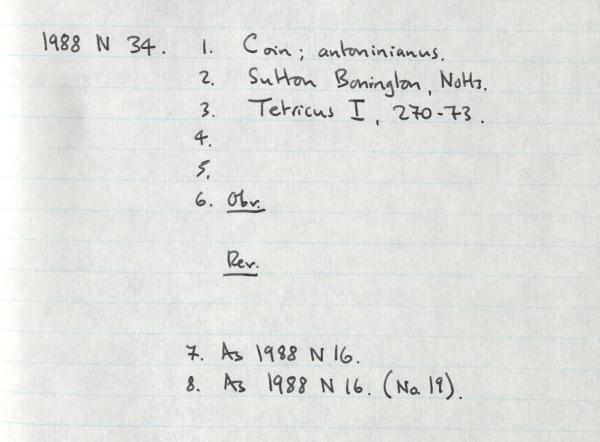 1988 N 34. 1. Coin; antoninianus.
2. Sutton Bonington, Notts.
3. Tetricus I, 270-73.
4.
5.
6. Obv.
Rev.
7. As 1988 N 16.
8. As 1988 N 16. (Na 19).